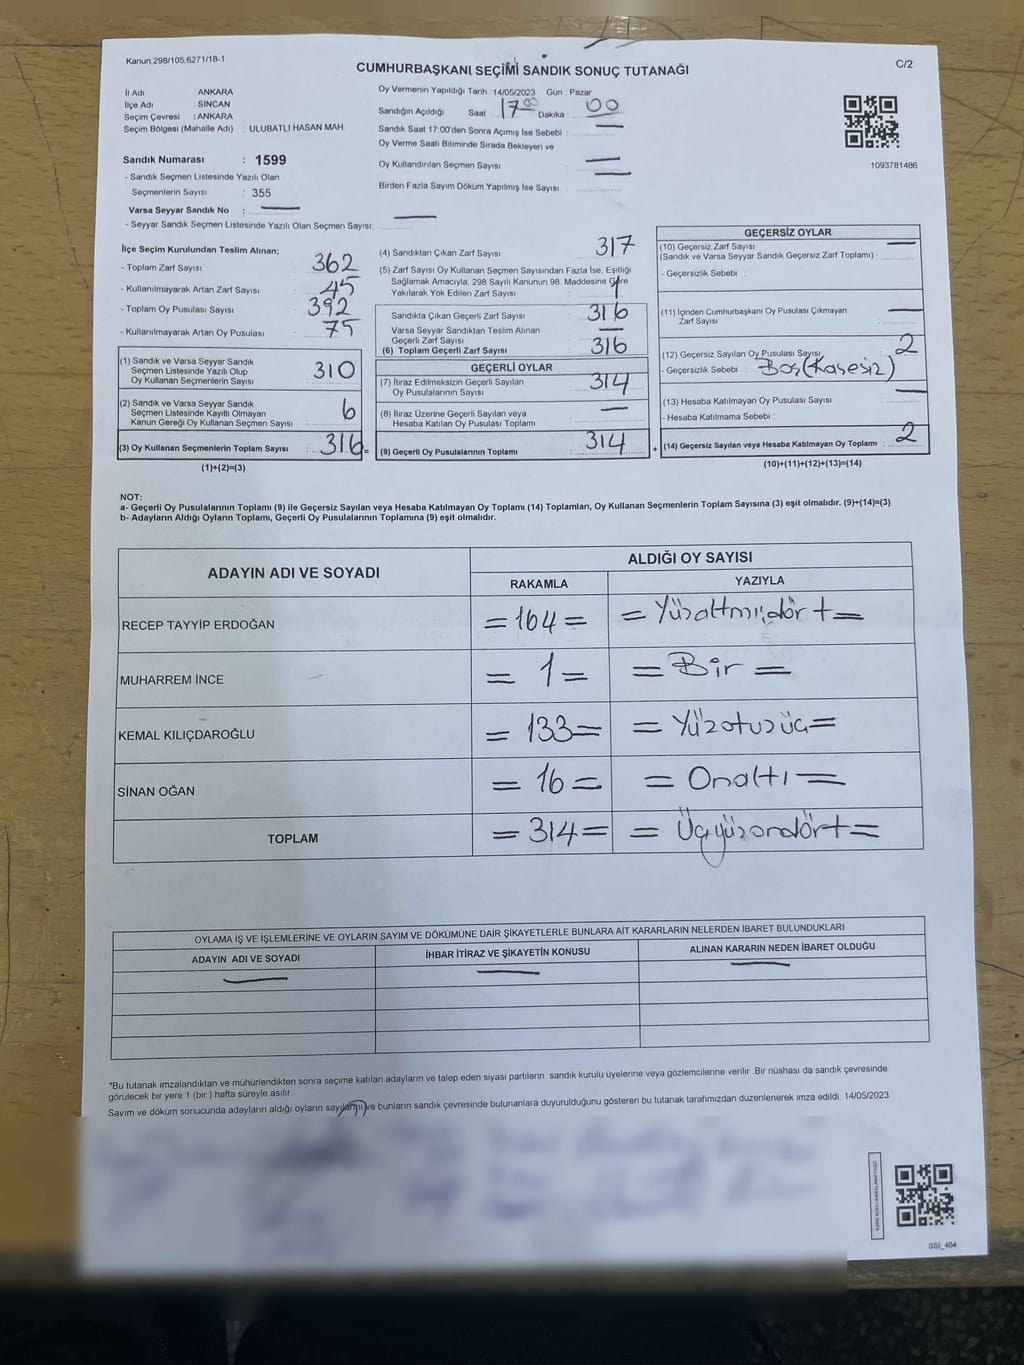 Kanun.298/105,6271/18-1
C/2
CUMHURBAŞKANI SEÇİMİ SANDIK SONUÇ TUTANAĞI
İl Adı ANKARA
İlçe Adı SİNCAN
Seçim Çevresi : ANKARA
Seçim Bölgesi (Mahalle Adı) : ULUBATLI HASAN MAH.
Sandık Numarası : 1599
- Sandık Seçmen Listesinde Yazılı Olan
Seçmenlerin Sayısı : 355
Varsa Seyyar Sandık No :
- Seyyar Sandık Seçmen Listesinde Yazılı Olan Seçmen Sayısı:
Oy Vermenin Yapıldığı Tarih 14/05/2023 Gün : Pazar
Sandığın Açıldığı Saat : 17 00 Dakika : 00
Sandık Saat 17:00'den Sonra Açımış İse Sebebi :
Oy Verme Saati Bitiminde Sırada Bekleyen ve
Oy Kullandırılan Seçmen Sayısı
Birden Fazla Sayım Döküm Yapılmış İse Sayısı :
1093781486
İlçe Seçim Kurulundan Teslim Alınan;
- Toplam Zarf Sayısı : 362
- Kullanılmayarak Artan Zarf Sayısı : 45
- Toplam Oy Pusulası Sayısı : 392
- Kullanılmayarak Artan Oy Pusulası : 75
(1) Sandık ve Varsa Seyyar Sandık
Seçmen Listesinde Yazılı Olup
Oy Kullanan Seçmenlerin Sayısı : 310
(2) Sandık ve Varsa Seyyar Sandık
Seçmen Listesinde Kayıtlı Olmayan
Kanun Gereği Oy Kullanan Seçmen Sayısı : 6
(3) Oy Kullanan Seçmenlerin Toplam Sayısı : 316 =
(1)+(2)=(3)
(4) Sandıktan Çıkan Zarf Sayısı : 317
(5) Zarf Sayısı Oy Kullanan Seçmen Sayısından Fazla İse, Eşitliği
Sağlamak Amacıyla, 298 Sayılı Kanunun 98. Maddesine Göre
Yakılarak Yok Edilen Zarf Sayısı : 1
Sandıkta Çıkan Geçerli Zarf Sayısı : 316
Varsa Seyyar Sandıktan Teslim Alınan
Geçerli Zarf Sayısı :
(6) Toplam Geçerli Zarf Sayısı : 316
GEÇERLİ OYLAR
(7) İtiraz Edilmeksizin Geçerli Sayılan
Oy Pusulalarının Sayısı : 314
(8) İtiraz Üzerine Geçerli Sayılan veya
Hesaba Katılan Oy Pusulası Toplamı :
(9) Geçerli Oy Pusulalarının Toplamı : 314 +
GEÇERSİZ OYLAR
(10) Geçersiz Zarf Sayısı
(Sandık ve Varsa Seyyar Sandık Geçersiz Zarf Toplamı) :
- Geçersizlik Sebebi :
(11) İçinden Cumhurbaşkanı Oy Pusulası Çıkmayan
Zarf Sayısı :
(12) Geçersiz Sayılan Oy Pusulası Sayısı : 2
- Geçersizlik Sebebi : Boş(Kaşesiz)
(13) Hesaba Katılmayan Oy Pusulası Sayısı :
- Hesaba Katılmama Sebebi :
(14) Geçersiz Sayılan veya Hesaba Katılmayan Oy Toplamı : 2
(10)+(11)+(12)+(13)=(14)
NOT:
a- Geçerli Oy Pusulalarının Toplamı (9) ile Geçersiz Sayılan veya Hesaba Katılmayan Oy Toplamı (14) Toplamları, Oy Kullanan Seçmenlerin Toplam Sayısına (3) eşit olmalıdır. (9)+(14)=(3)
b- Adayların Aldığı Oyların Toplamı, Geçerli Oy Pusulalarının Toplamına (9) eşit olmalıdır.
ADAYIN ADI VE SOYADI ALDIĞI OY SAYISI
RAKAMLA YAZIYLA
RECEP TAYYİP ERDOĞAN =164= =Yüzaltmışdört=
MUHARREM İNCE =1= =Bir=
KEMAL KILIÇDAROĞLU =133= =Yüzotuzüç=
SİNAN OĞAN =16= =Onaltı=
TOPLAM =314= =Üçyüzondört=
OYLAMA İŞ VE İŞLEMLERİNE VE OYLARIN SAYIM VE DÖKÜMÜNE DAİR ŞİKAYETLERLE BUNLARA AİT KARARLARIN NELERDEN İBARET BULUNDUKLARI
ADAYIN ADI VE SOYADI İHBAR İTİRAZ VE ŞİKAYETİN KONUSU ALINAN KARARIN NEDEN İBARET OLDUĞU
*Bu tutanak imzalandıktan ve mühürlendikten sonra seçime katılan adayların ve talep eden siyasi partilerin sandık kurulu üyelerine veya gözlemcilerine verilir. Bir nüshası da sandık çevresinde
görülecek bir yere 1 (bir) hafta süreyle asılır.
Sayım ve döküm sonucunda adayların aldığı oyların sayılarını ve bunların sandık çevresinde bulunanlara duyurulduğunu gösteren bu tutanak tarafımızdan düzenlenerek imza edildi. 14/05/2023
SSİ_404